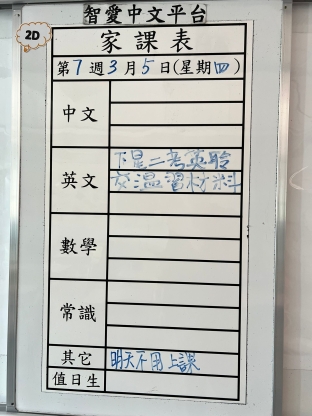 智愛中文平台
2D
家課表
第7週3月5日(星期四)
中文
英文
下星二考英聆
交溫習材料
數學
常識
其它
明天不用上課
值日生